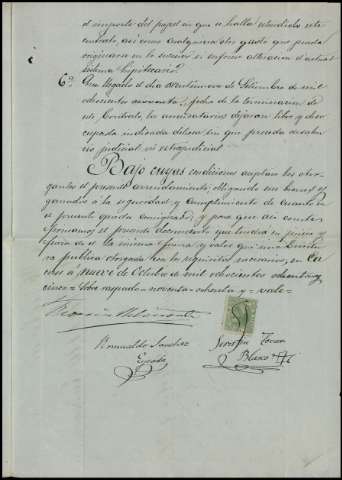 el importe del papel en que se halla estendido este
contrato, asi como cualquiera otro gasto que pueda
originarse en lo sucesivo si sufriera alteracion el actual
sistema hipotecario.
6ª Que llegado el dia veintinueve de Setiembre de mil
ochocientos noventa, fecha de la terminacion de
este Contrato, los arrendatarios dejaran libre y deso
cupada la indicada dehesa sin que preceda desahu
cio judicial ni extrajudicial.
Bajo cuyas condiciones aceptan los otor
gantes el presente arrendamiento, obligando sus bienes
ganados a la seguridad y cumplimiento de cuanto en
el presente queda consignado; y para que asi conste
firmamos el presente documento que tendra en juicio y
fuera de el la misma fuerza y valor que una Escritu
ra publica otorgada con los requisitos necesarios, en
a nueve de Octubre de mil ochocientos ochenta y
cinco = Sobre raspado = noventa = ochenta y = vale =
Romualdo Sanchez
Serafin
Blasco